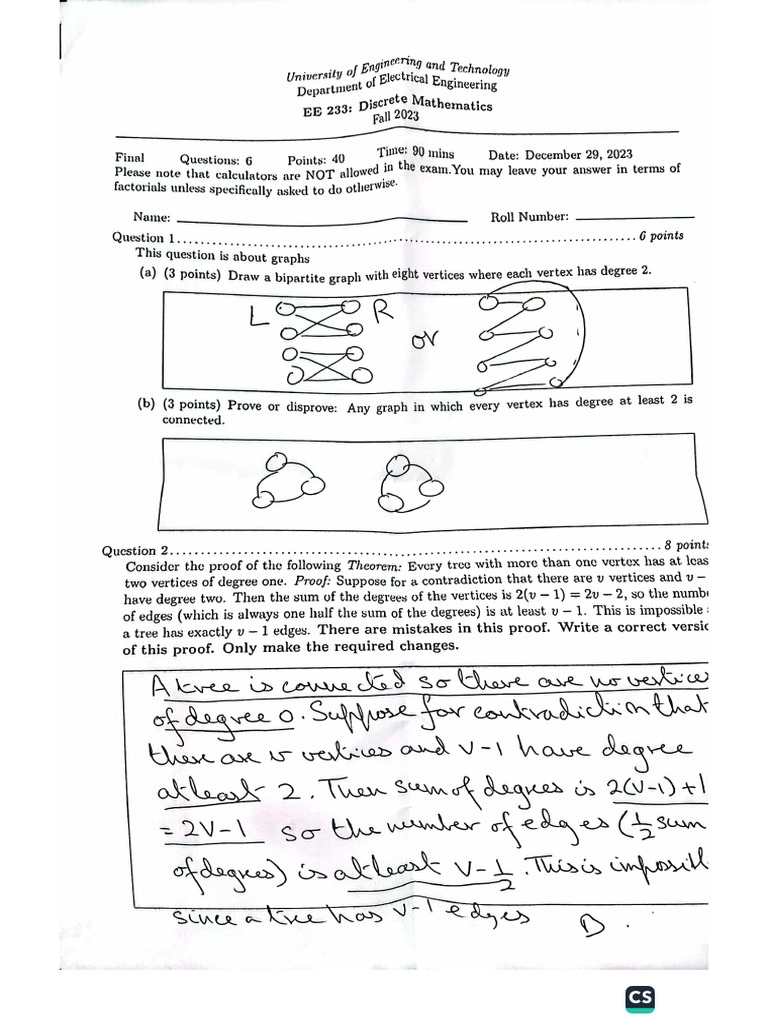 University of Engineering and Technology
Department of Electrical Engineering
EE 233: Discrete Mathematics
Fall 2023
Final Questions: 6 Points: 40 Time: 90 mins Date: December 29, 2023
Please note that calculators are NOT allowed in the exam.You may leave your answer in terms of
factorials unless specifically asked to do otherwise.
Name: Roll Number:
Question 1 6 points
This question is about graphs
(a) (3 points) Draw a bipartite graph with eight vertices where each vertex has degree 2.
L R or
(b) (3 points) Prove or disprove: Any graph in which every vertex has degree at least 2 is
connected.
Question 2 8 points
Consider the proof of the following Theorem: Every tree with more than one vertex has at leas
two vertices of degree one. Proof: Suppose for a contradiction that there are v vertices and v −
have degree two. Then the sum of the degrees of the vertices is 2(v − 1) = 2v − 2, so the numb
of edges (which is always one half the sum of the degrees) is at least v − 1. This is impossible
a tree has exactly v − 1 edges. There are mistakes in this proof. Write a correct versic
of this proof. Only make the required changes.
A tree is connected so there are no vertices
of degree 0. Suppose for contradiction that
there are v vertices and v-1 have degree
at least 2. Then sum of degrees is 2(v-1)+1
= 2v-1 so the number of edges (1/2 sum
of degrees) is at least v-1/2. This is impossibl
since a tree has v-1 edges
CS